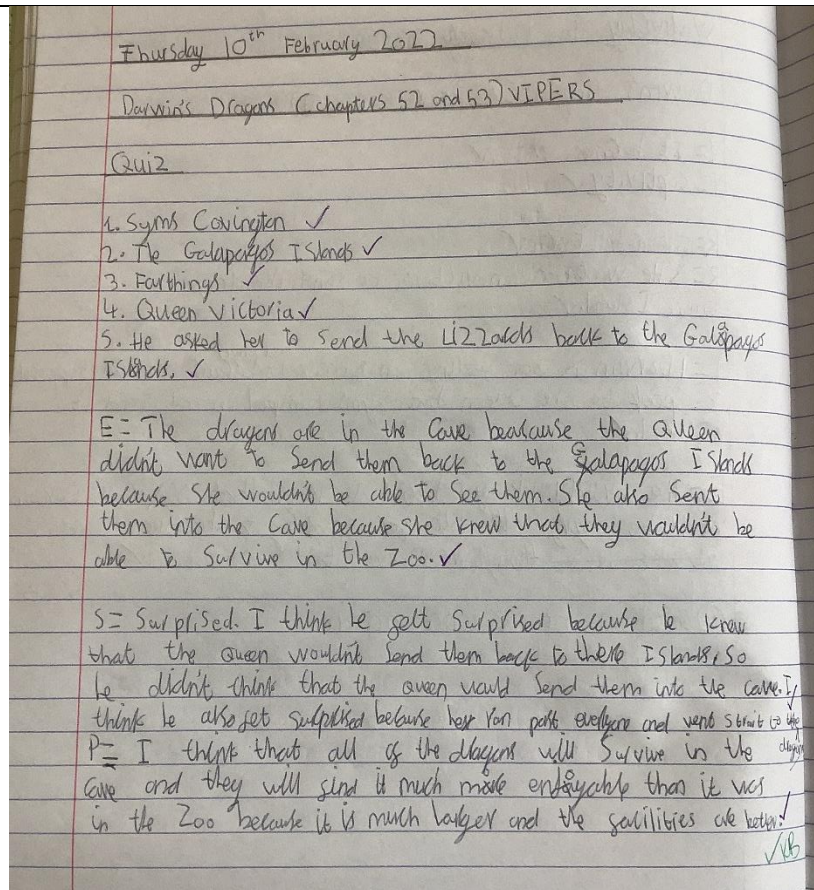 Thursday 10th February 2022
Darwin's Dragons (chapters 52 and 53) VIPERS
Quiz
1. Syms Covington ✓
2. The Galapagos Islands ✓
3. Farthings ✓
4. Queen Victoria ✓
5. He asked her to send the Lizzards back to the Galapagos
Islands. ✓
E= The dragons are in the Cave beacause the Queen
didn't want to send them back to the Galapagos Islands
because she wouldn't be able to see them. She also sent
them into the Cave because she knew that they wouldn't be
able to survive in the Zoo. ✓
S= Surprised. I think he felt surprised because he knew
that the Queen wouldn't send them back to there Islands, so
he didn't think that the queen would send them into the cave. I
think he also felt surprised because ran past everyone and went strait to the
dragons
P= I think that all of the dragons will survive in the
cave and they will find it much more enjoyable than it was
in the Zoo because it is much larger and the facilities are better.
✓ KB